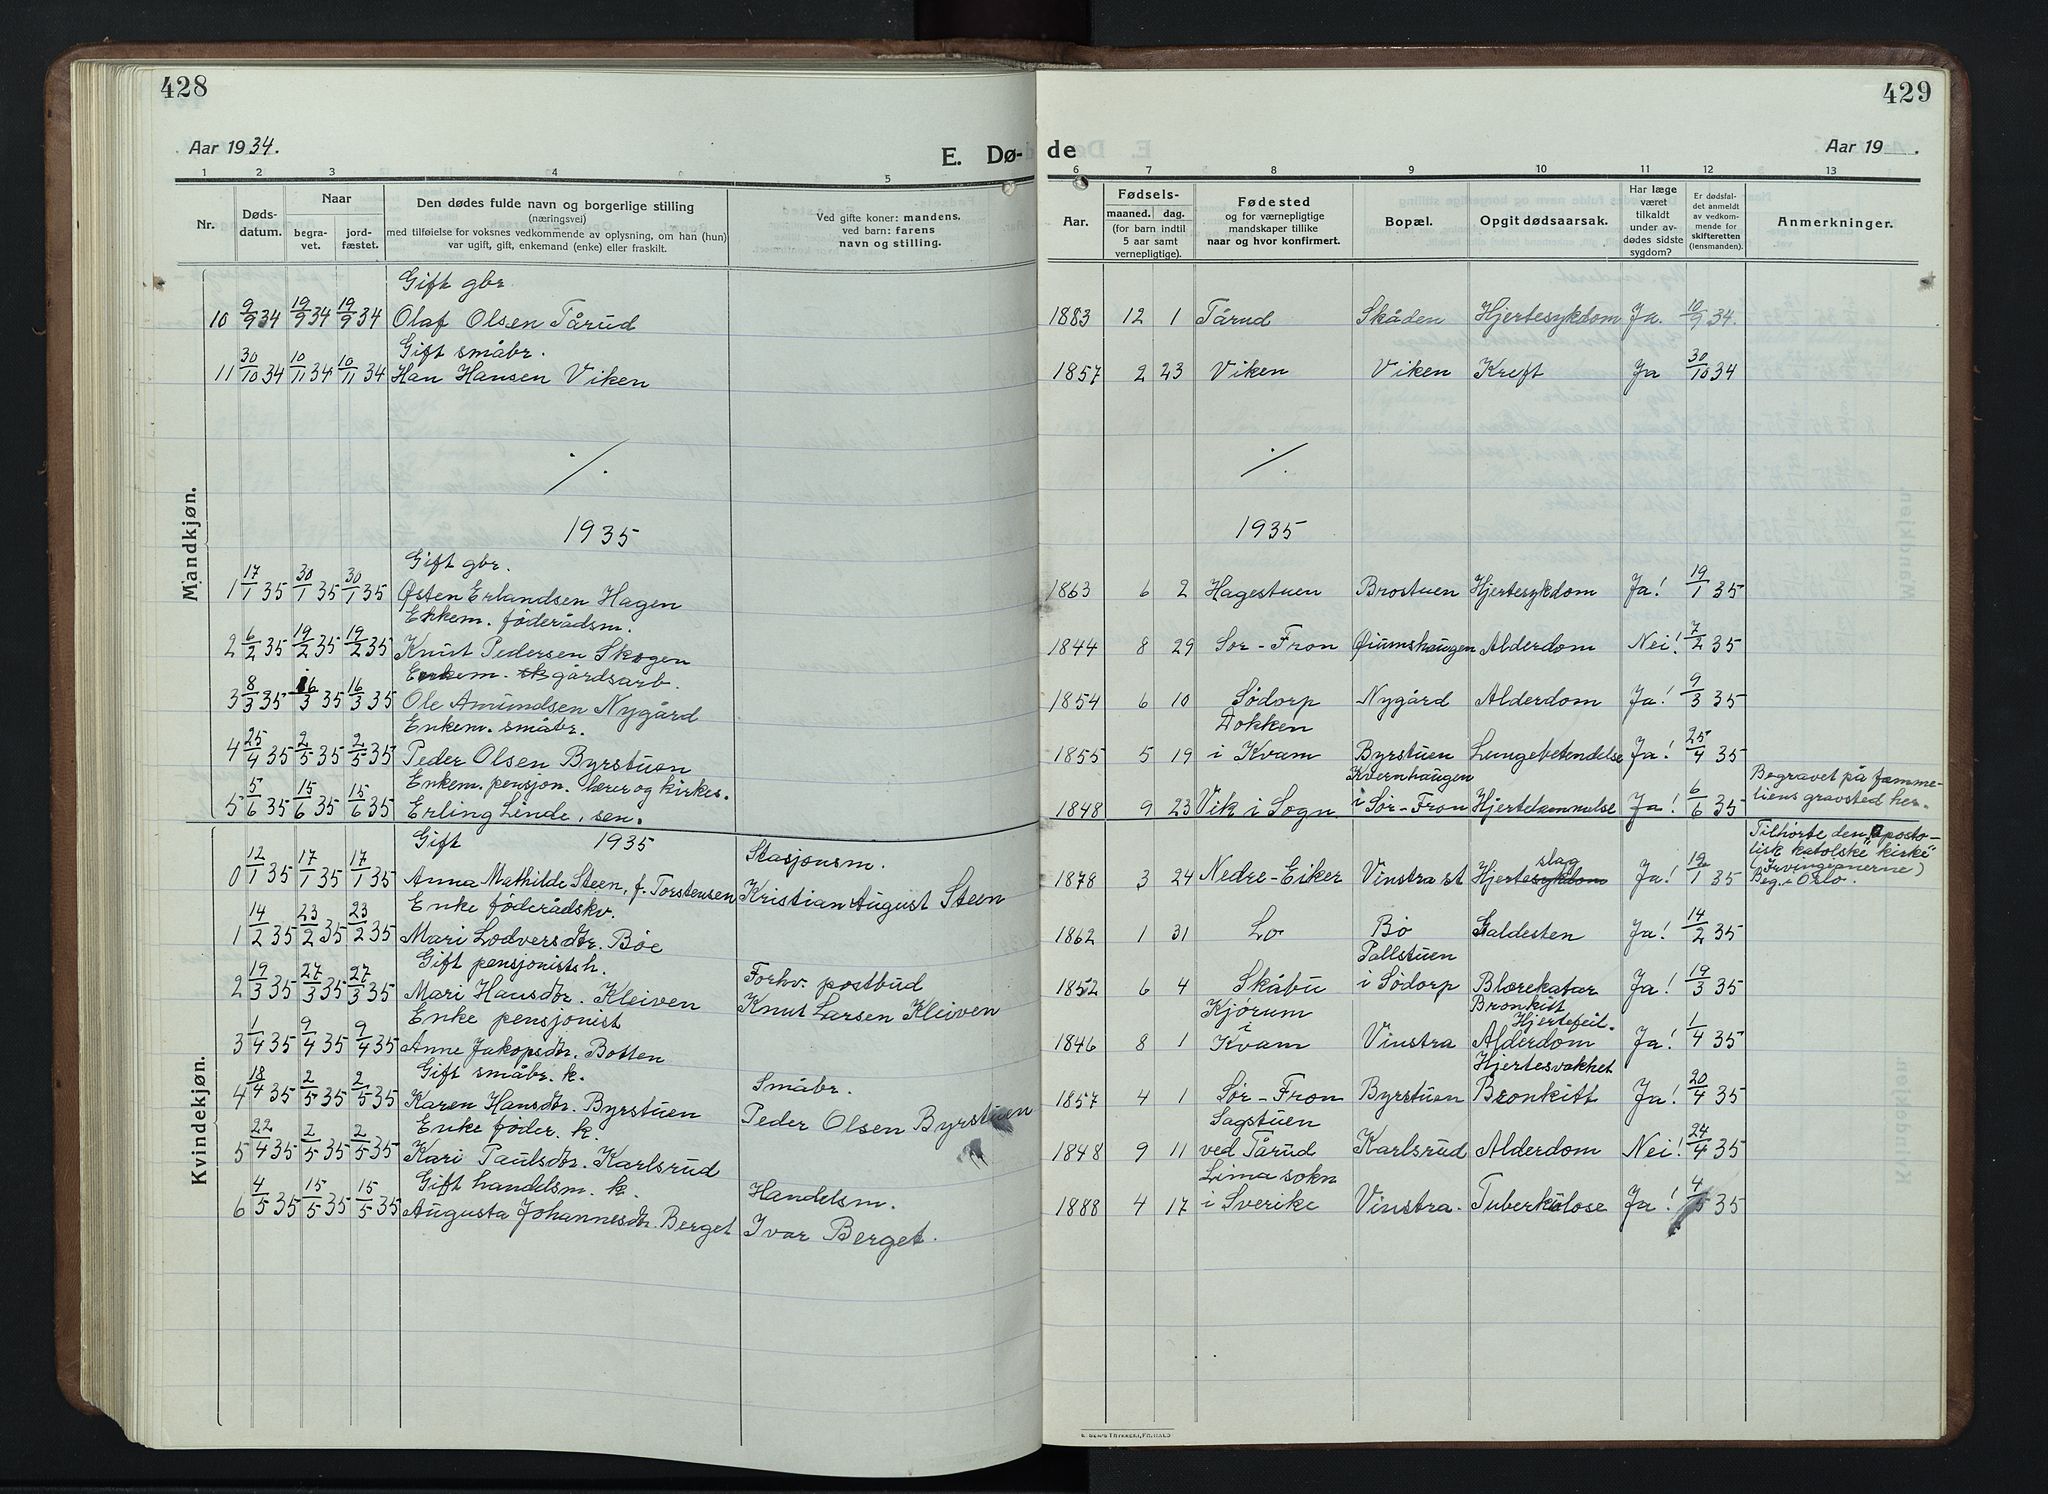 428
Aar 1934.
E. Dø-
1 2 3 4 5
Nr. Døds-datum. Naar begra-vet. jord-fæstet. Den dødes fulde navn og borgerlige stilling (næringsvei) med tilføielse for voksnes vedkommende av oplysning, om han (hun) var ugift, gift, enkemand (enke) eller fraskilt. Ved gifte koner: mandens, ved barn: farens navn og stilling.
Mandkjøn.
Gift gbr.
10 9/9 34 19/9 34 19/9 34 Olaf Olsen Tårud
Gift småbr.
11 30/10 34 10/11 34 10/11 34 Han Hansen Viken
1935
Gift gbr.
1 17/1 35 30/1 35 30/1 35 Østen Erlandsen Hagen
Ekkem. föderådsm.
2 6/2 35 19/2 35 19/2 35 Knut Pedersen Skogen
Enkem. gårdsarb.
3 8/3 35 16/3 35 16/3 35 Ole Amundsen Nygård
Enkem. småbr.
4 25/4 35 2/5 35 2/5 35 Peder Olsen Byrstuen
Enkem. pensjon. lærer og kirkes.
5 5/6 35 15/6 35 15/6 35 Erling Linde, sen.
Kvindekjøn.
Gift 1935 Stasjonsm.
0 12/1 35 17/1 35 17/1 35 Anna Mathilde Steen, f. Torstensen Kristian August Steen
Enke föderådskv.
1 14/2 35 23/2 35 23/2 35 Mari Lodversdtr. Böe
Gift pensjonistsh. Forhv. postbud
2 19/3 35 27/3 35 27/3 35 Mari Hansdtr. Kleiven Knut Larsen Kleiven
Enke pensjonist
3 1/4 35 9/4 35 9/4 35 Anne Jakopsdtr. Botten
Gift småbr. k. Småbr.
4 18/4 35 2/5 35 2/5 35 Karen Hansdtr. Byrstuen Peder Olsen Byrstuen
Enke föder. k.
5 22/4 35 2/5 35 2/5 35 Kari Paulsdtr. Karlsrud
Gift handelsm. k. Handelsm.
6 4/5 35 15/5 35 15/5 35 Augusta Johannesdtr. Berget Ivar Berget.
429
de
Aar 19 .
6 7 8 9 10 11 12 13
Aar. Fødsels- maaned. dag. (for barn indtil 5 aar samt vernepligtige). Fødested og for værnepligtige mandskaper tillike naar og hvor konfirmert. Bopæl. Opgit dødsaarsak. Har læge været tilkaldt under av-dødes sidste sygdom? Er dødsfal-det anmeldt av vedkom-mende for skifteretten (lensmanden). Anmerkninger.
1883 12 1 Tårud Skåden Hjertesykdom Ja. 10/9 34.
1857 2 23 Viken Viken Kreft Ja 30/10 34
1935
1863 6 2 Hagestuen Brostuen Hjertesykdom Ja! 19/1 35
1844 8 29 Sør-Fron Øiumshaugen Alderdom Nei! 7/2 35
1854 6 10 Södorp Nygård Alderdom Ja! 9/3 35
Lokken
1855 5 19 i Kvam Byrstuen Lungebetendelse Ja! 25/4 35
Kvernhaugen Begravet på famme-
1848 9 23 Vik i Sogn i Sör-Fron Hjertelammelse Ja! 6/6 35 liens gravsted her.
slag Tilhörte den „aposto-
lisk katolske" kirke
1878 3 24 Nedre-Eiker Vinstra st Hjertesykdom Ja! 12/1 35 (Irvingeanerne)
Beg. i Oslo.
1862 1 31 Lo Bö Galdesten Ja! 14/2 35
Pallstuen
1852 6 4 Skåbu i Södorp Blærekatar Ja! 19/3 35
Kjörum Bronkitt
i Hjertefeil.
1846 8 1 Kvam Vinstra Alderdom Ja! 1/4 35
Hjertesvakhet
1857 4 1 Sör-Fron Byrstuen Bronkitt Ja! 20/4 35
Sagstuen
1848 9 11 ved Tårud Karlsrud Alderdom Nei! 24/4 35
Lima sokn
1888 4 17 i Sverike Vinstra. Tuberkulose Ja! 4/5 35